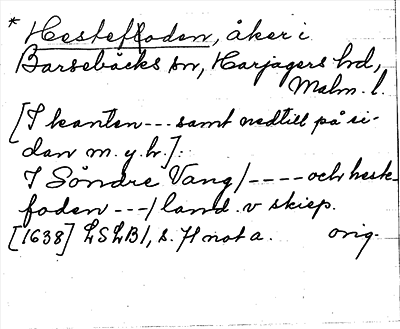 * Hestefoden, åker i
Barsebäcks sn, Harjagers hd,
Malm. l.
[I kanten --- samt nedtill på si-
dan m. y. h.]:
I Söndre Vang / ---- och hesk-
foden --- / land. v skiep.
[1638] LSLB1, s. 71 not a. orig.